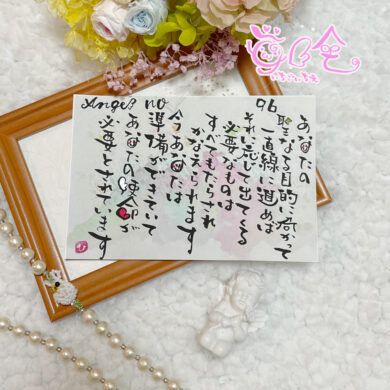 Angel no
96
あなたの
聖なる目的に向かって
一直線に進めば
それに応じて出てくる
必要なものは
すべてもたらされ
かなえられます
今あなたは
準備ができていて
あなたの使命が
必要とされています